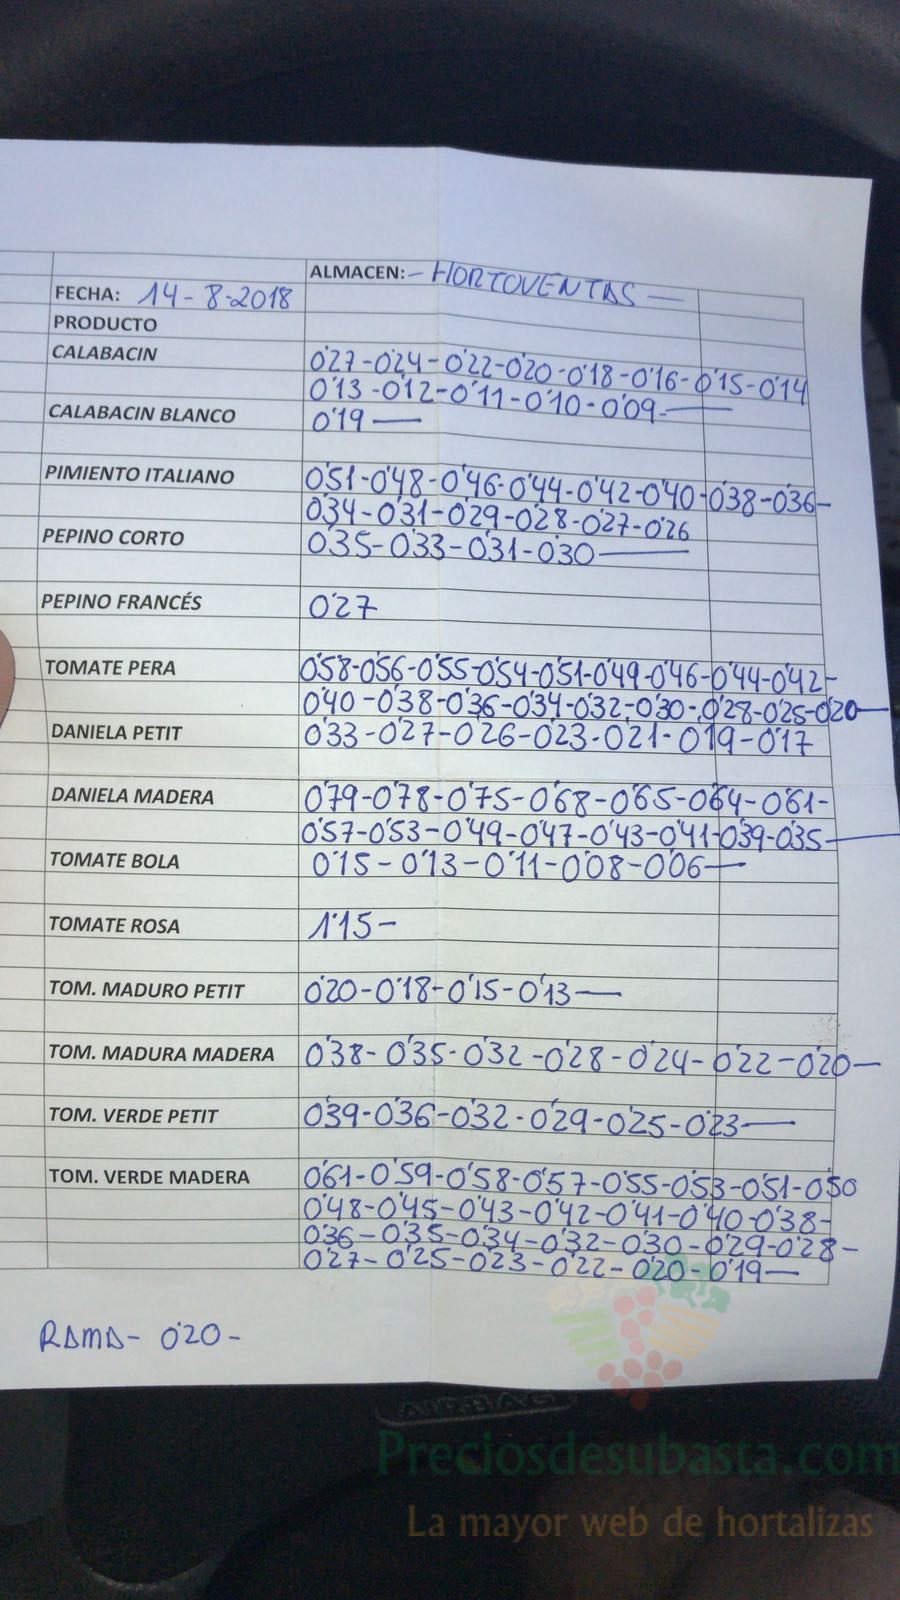 ALMACEN:- HORTOVENTAS —
FECHA: 14-8-2018
PRODUCTO
CALABACIN 0'27-0'24-0'22-0'20-0'18-0'16-0'15-0'14
0'13-0'12-0'11-0'10-0'09-
CALABACIN BLANCO 0'19—
PIMIENTO ITALIANO 0'51-0'48-0'46-0'44-0'42-0'40-0'38-0'36-
0'34-0'31-0'29-0'28-0'27-0'26
PEPINO CORTO 0'35-0'33-0'31-0'30—
PEPINO FRANCÉS 0'27
TOMATE PERA 0'58-0'56-0'55-0'54-0'51-0'49-0'46-0'44-0'42-
0'40-0'38-0'36-0'34-0'32-0'30-0'28-0'25-0'20—
DANIELA PETIT 0'33-0'27-0'26-0'23-0'21-0'19-0'17
DANIELA MADERA 0'79-0'78-0'75-0'68-0'65-0'64-0'61-
0'57-0'53-0'49-0'47-0'43-0'41-0'39-0'35—
TOMATE BOLA 0'15-0'13-0'11-0'08-0'06—
TOMATE ROSA 1'15-
TOM. MADURO PETIT 0'20-0'18-0'15-0'13—
TOM. MADURA MADERA 0'38-0'35-0'32-0'28-0'24-0'22-0'20—
TOM. VERDE PETIT 0'39-0'36-0'32-0'29-0'25-0'23—
TOM. VERDE MADERA 0'61-0'59-0'58-0'57-0'55-0'53-0'51-0'50
0'48-0'45-0'43-0'42-0'41-0'40-0'38-
0'36-0'35-0'34-0'32-0'30-0'29-0'28-
0'27-0'25-0'23-0'22-0'20-0'19—
RAMA- 0'20-
AIRBAG
Preciosdesubasta.com
La mayor web de hortalizas